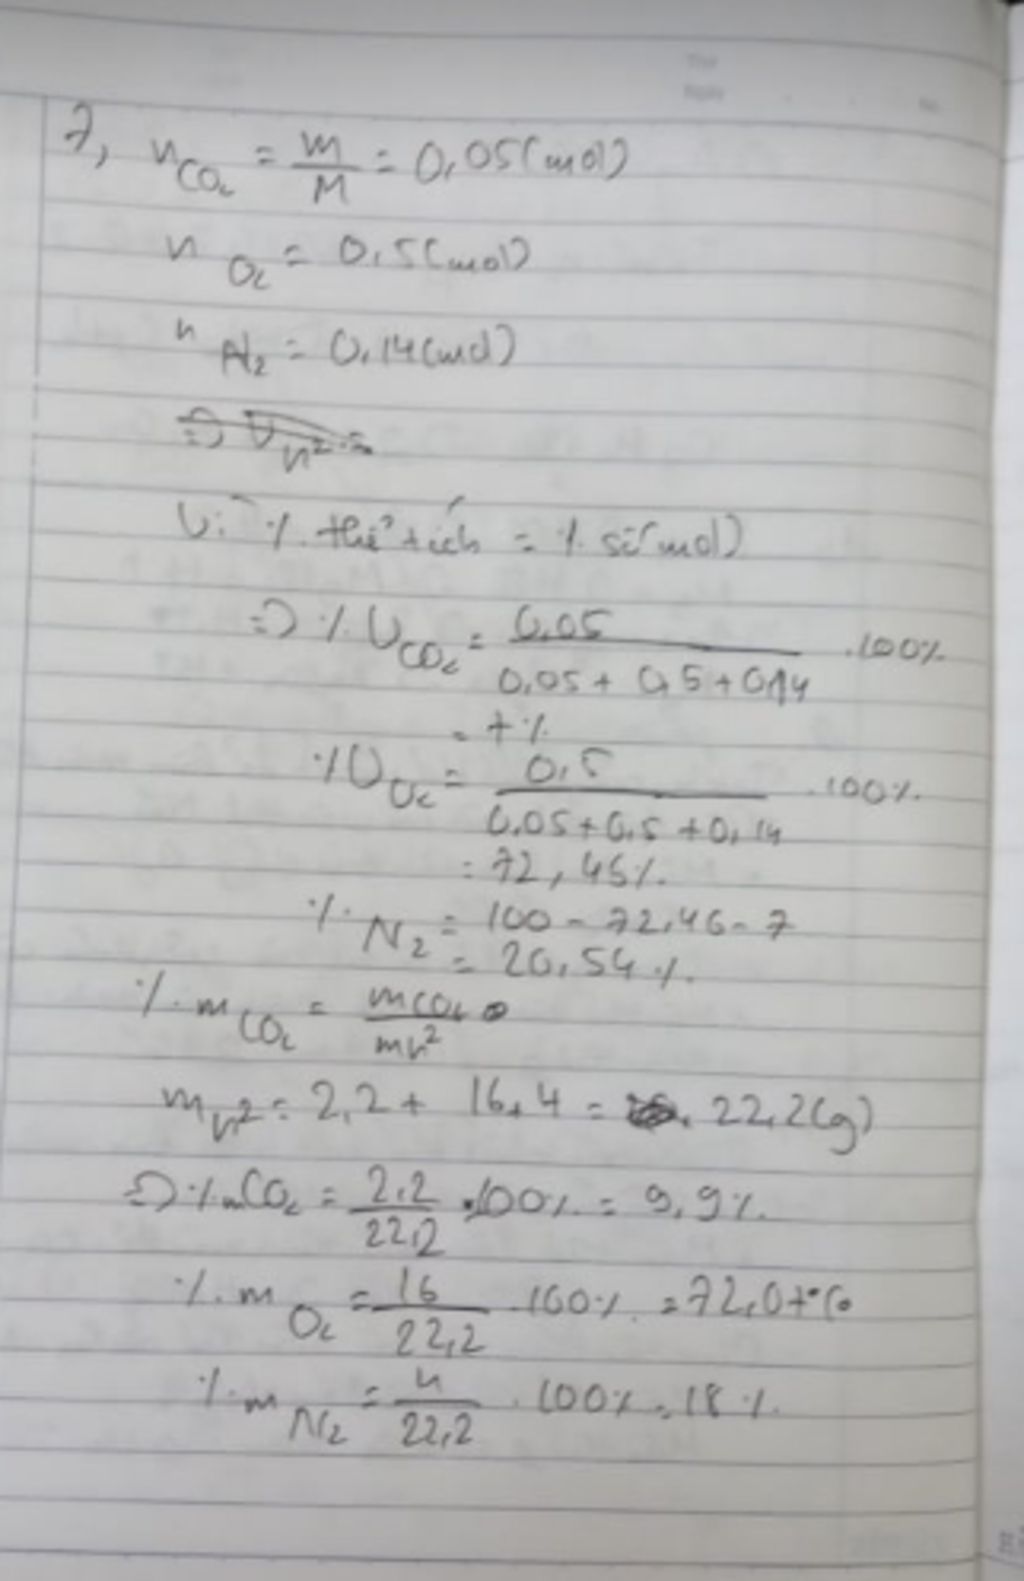 7, nCO₂ = m/M = 0,05(mol)
nO₂ = 0,5(mol)
nN₂ = 0,14(mol)
Vì % thể tích = % số mol)
=> % VCO₂ = 0,05 / (0,05 + 0,5 + 0,14) . 100%
= 7%
% VO₂ = 0,5 / (0,05 + 0,5 + 0,14) . 100%
= 72,45%
% N₂ = 100 - 72,46 - 7
= 20,54%.
% mCO₂ = mCO₂ / mh²
mh² = 2,2 + 16 + 4 = 22,2(g)
=> % mCO₂ = 2,2 / 22,2 . 100% = 9,9%.
% mO₂ = 16 / 22,2 . 100% = 72,07%
% mN₂ = 4 / 22,2 . 100% = 18%.